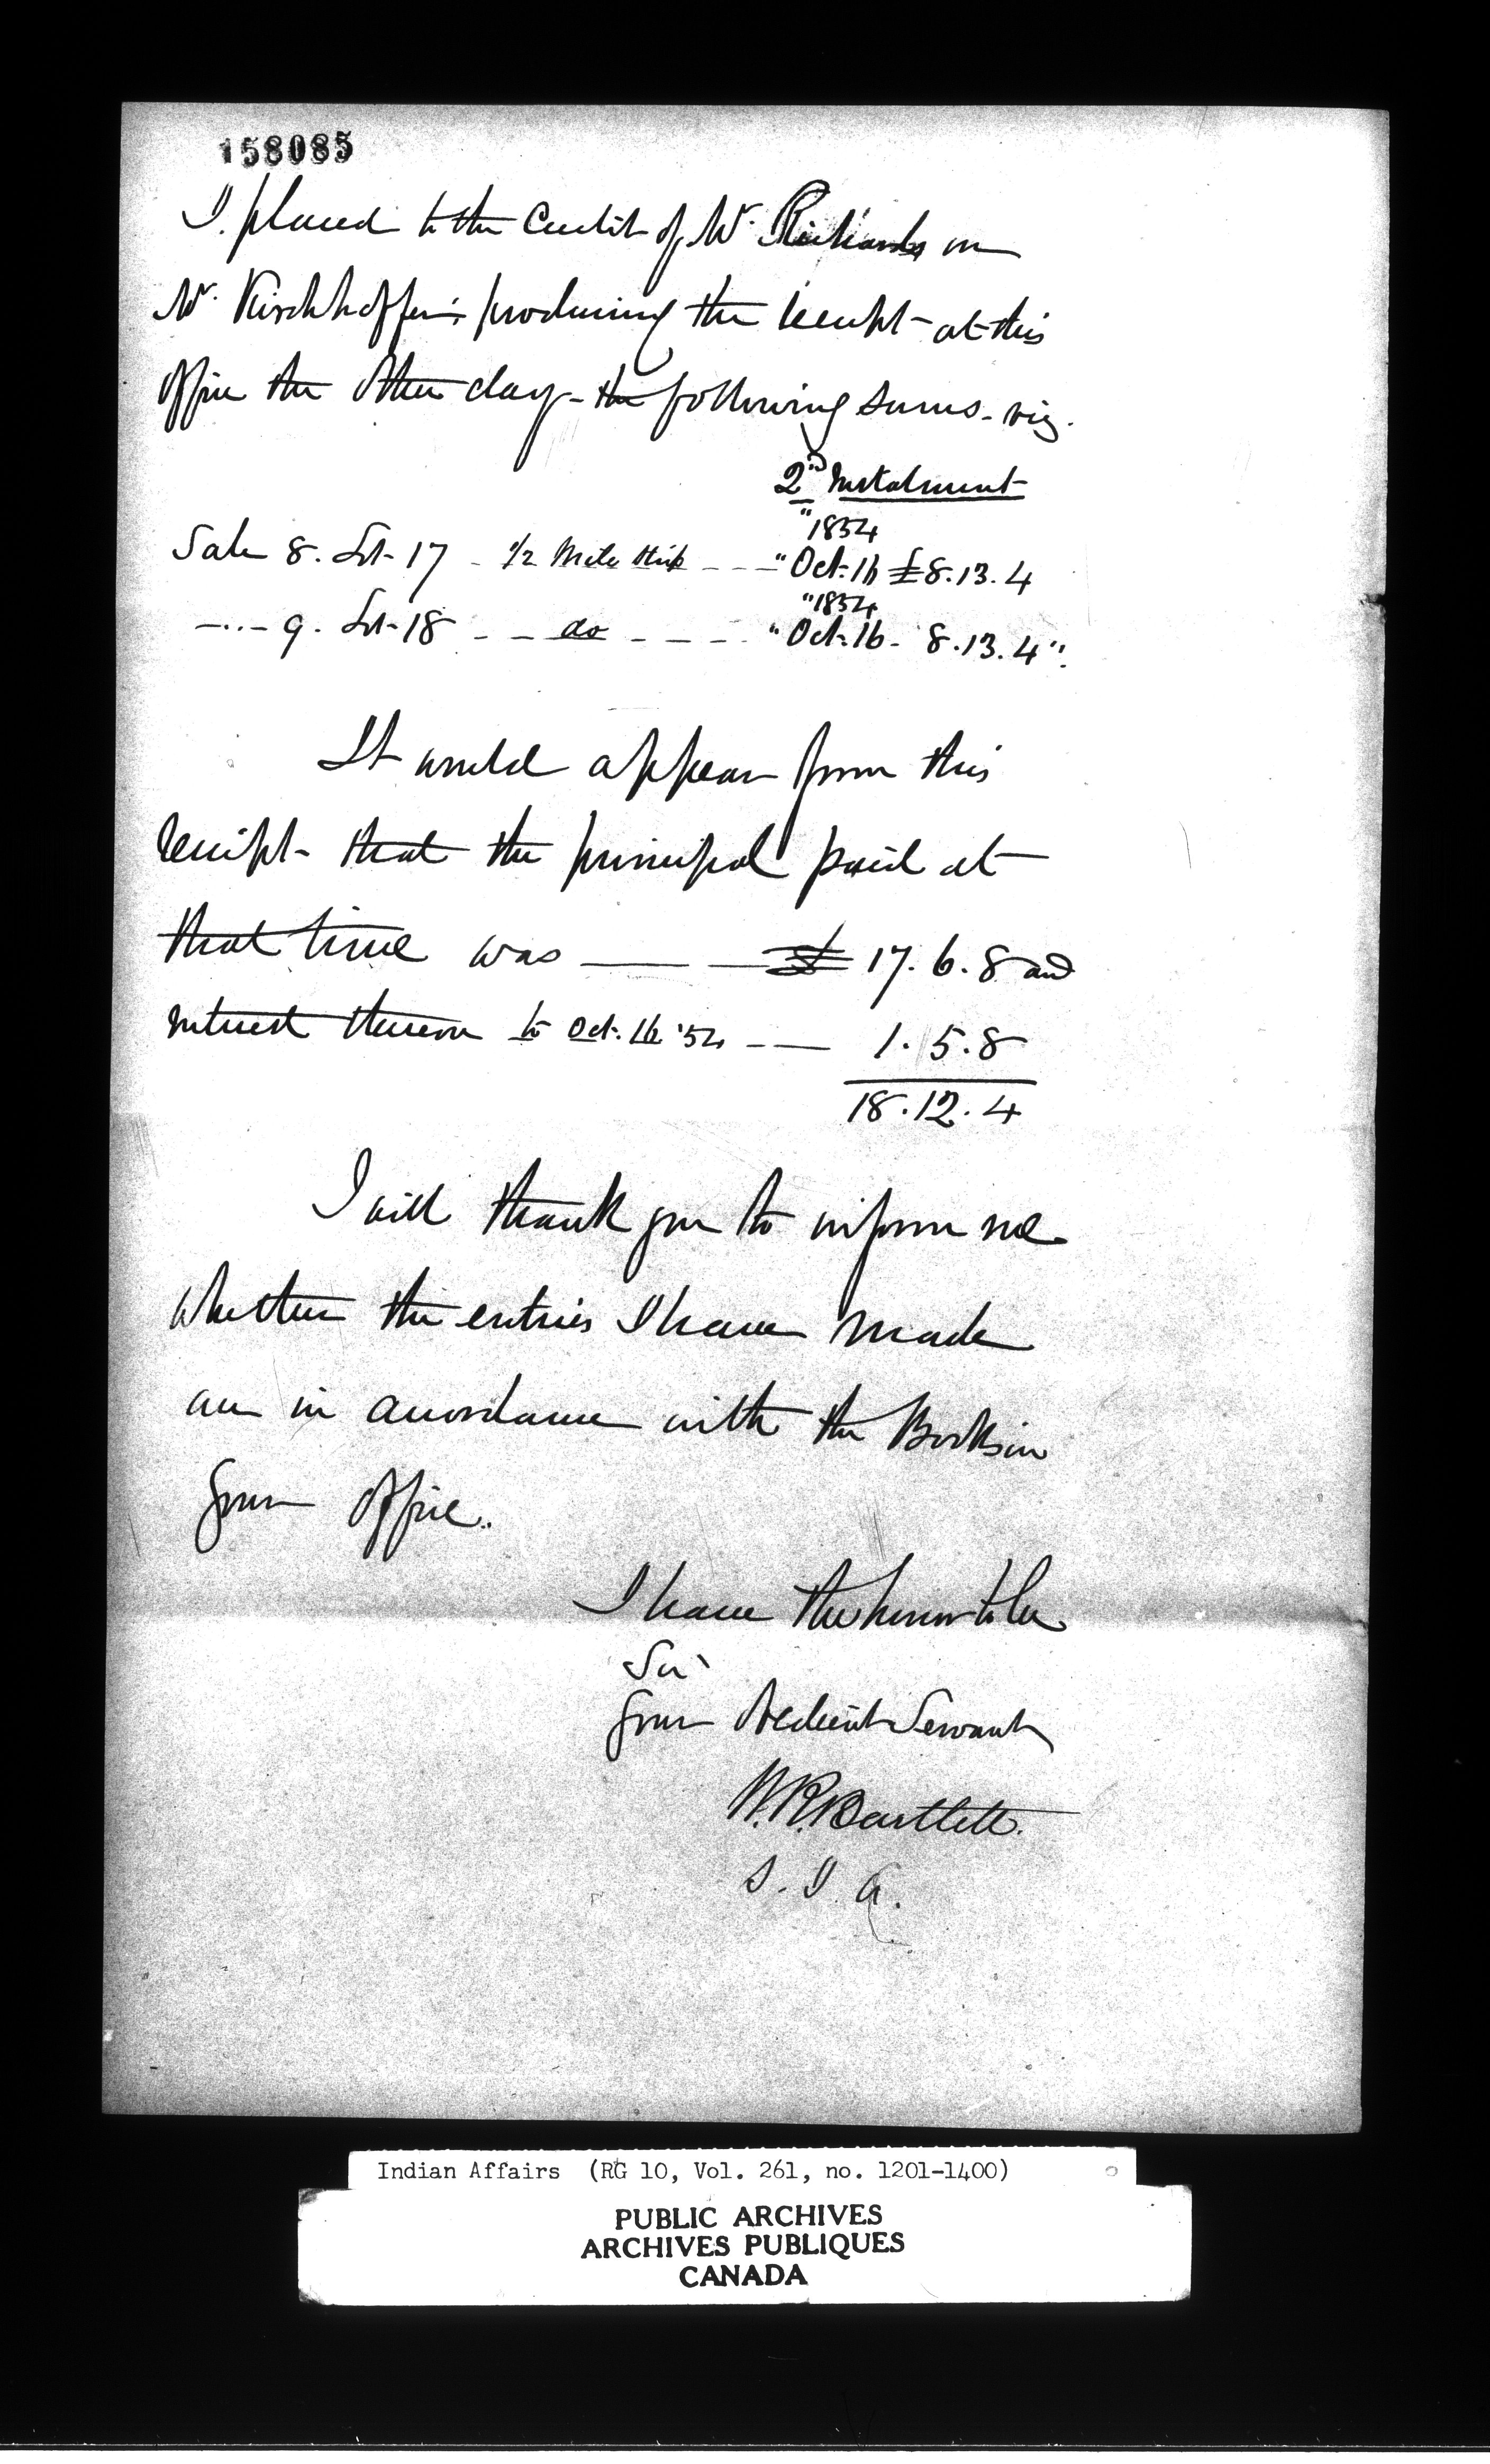 158085
I placed to the Credit of Mr. Richards on
Mr. Kirchhoffer's producing the receipt at this
office the other day - the following sums - viz.
2nd Instalment
"1854
Sale 8. Lot 17 - 1/2 Mile Strip - - - "Oct. 16 £8.13.4
"1854
-..- 9. Lot 18 - - do - - - - "Oct. 16 - 8.13.4".
It would appear from this
receipt - that the principal paid at
that time was — — £ 17. 6. 8 and
interest thereon to Oct. 16 '54 - - — 1. 5. 8
18. 12. 4
I will thank you to inform me
whether the entries I have made
are in accordance with the Books in
your office.
I have the honor to be
Sir
Your Obedient Servant
W.R. Bartlett.
S. I. A.
Indian Affairs (RG 10, Vol. 261, no. 1201-1400)
PUBLIC ARCHIVES
ARCHIVES PUBLIQUES
CANADA